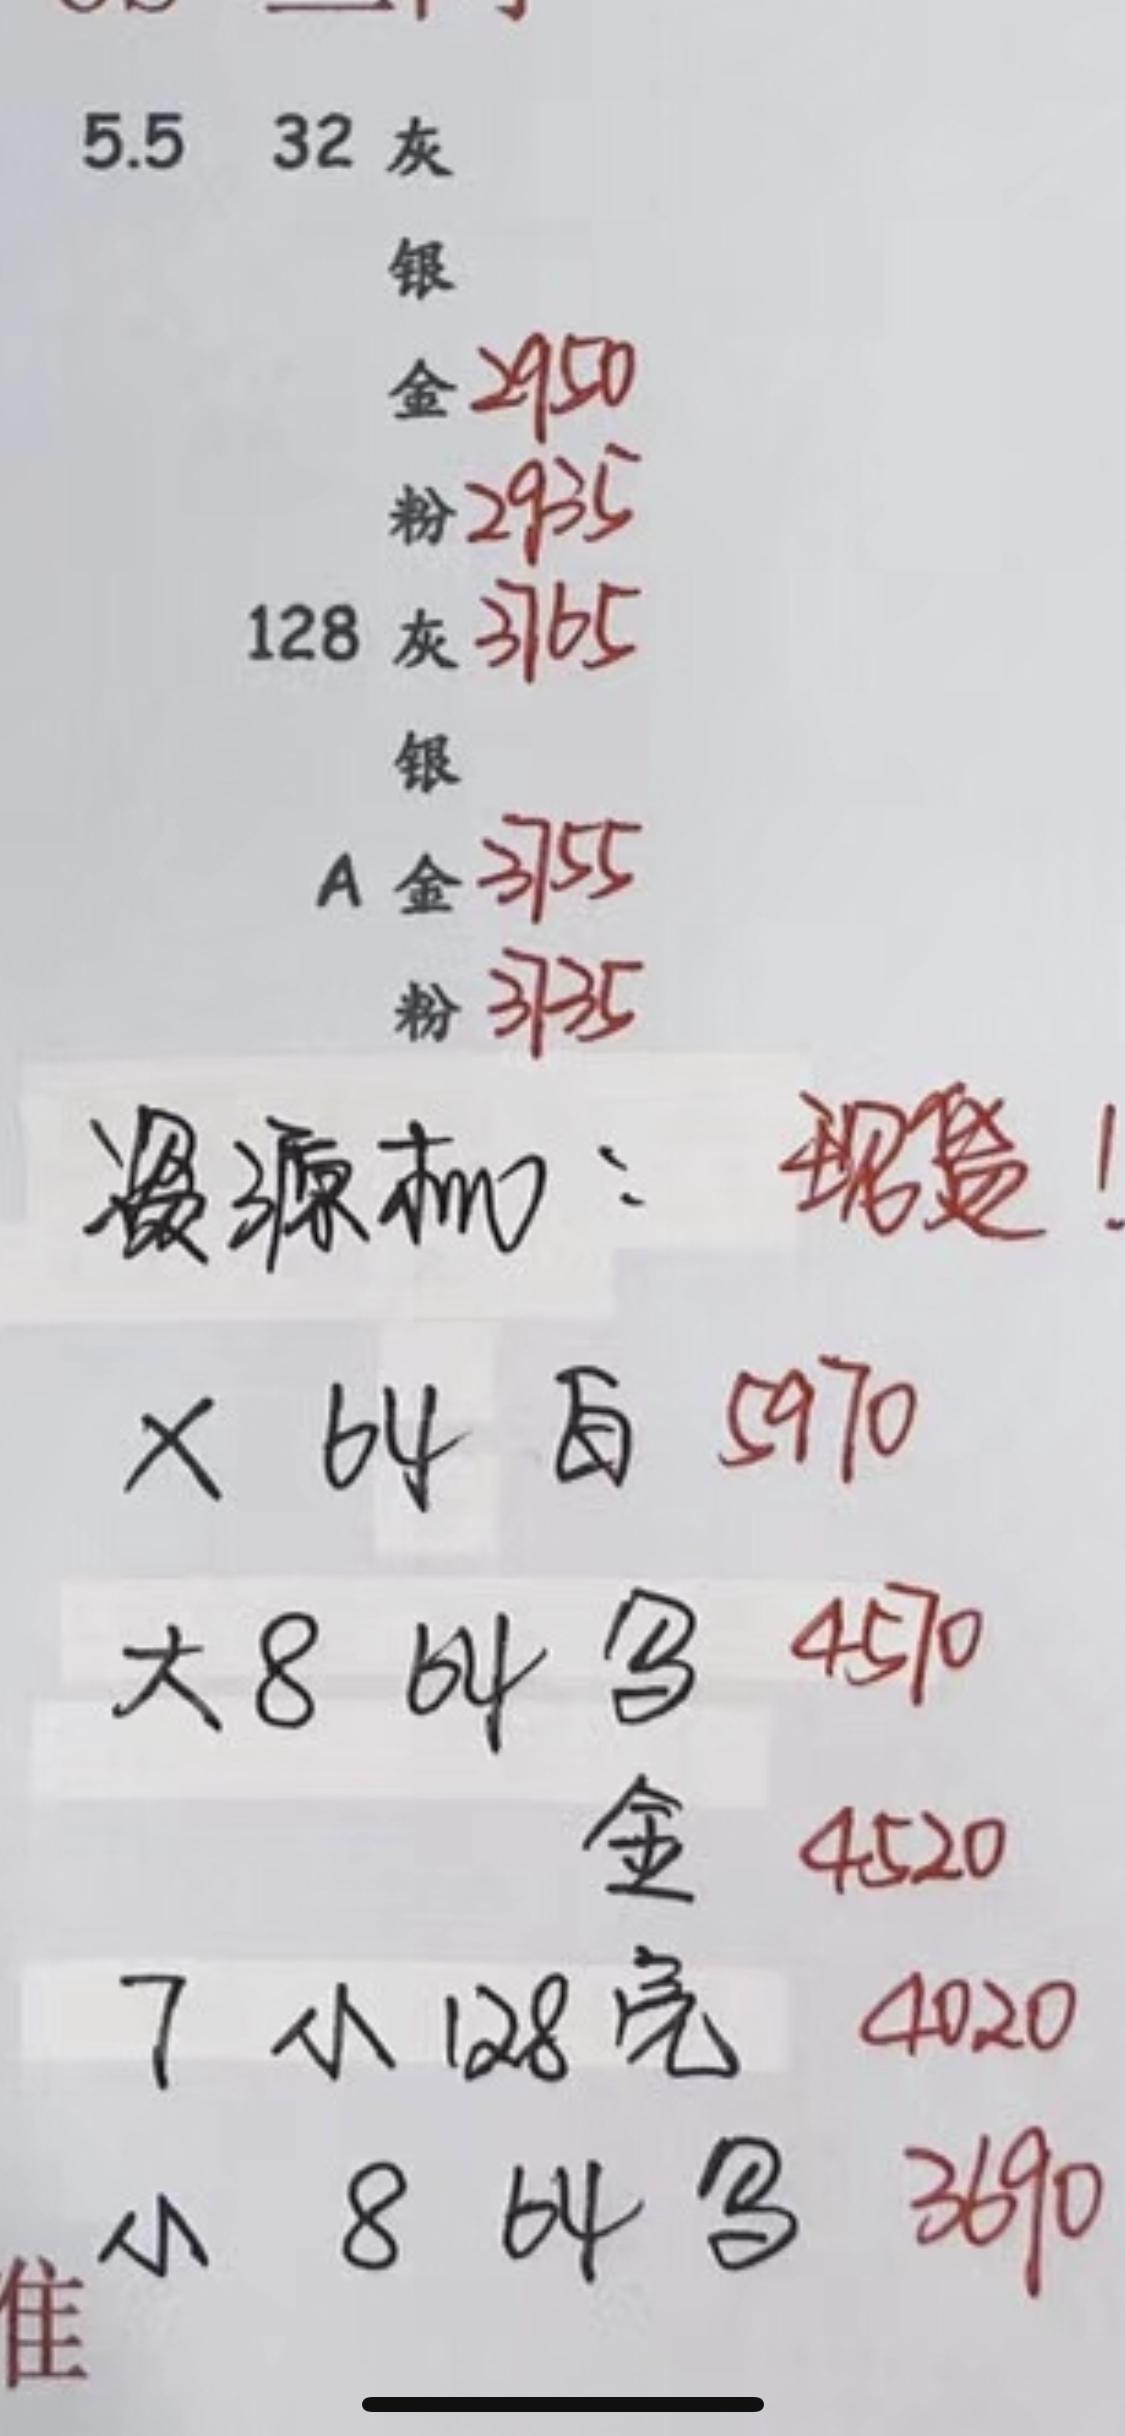 5.5 32 灰
银
金 2950
粉 2935
128 灰 3765
银
A 金 3755
粉 3735
资源机： 现货！
X 64 白 5970
大8 64 写 4570
金 4520
7 小 128 亮 4020
小 8 64 写 3690
准